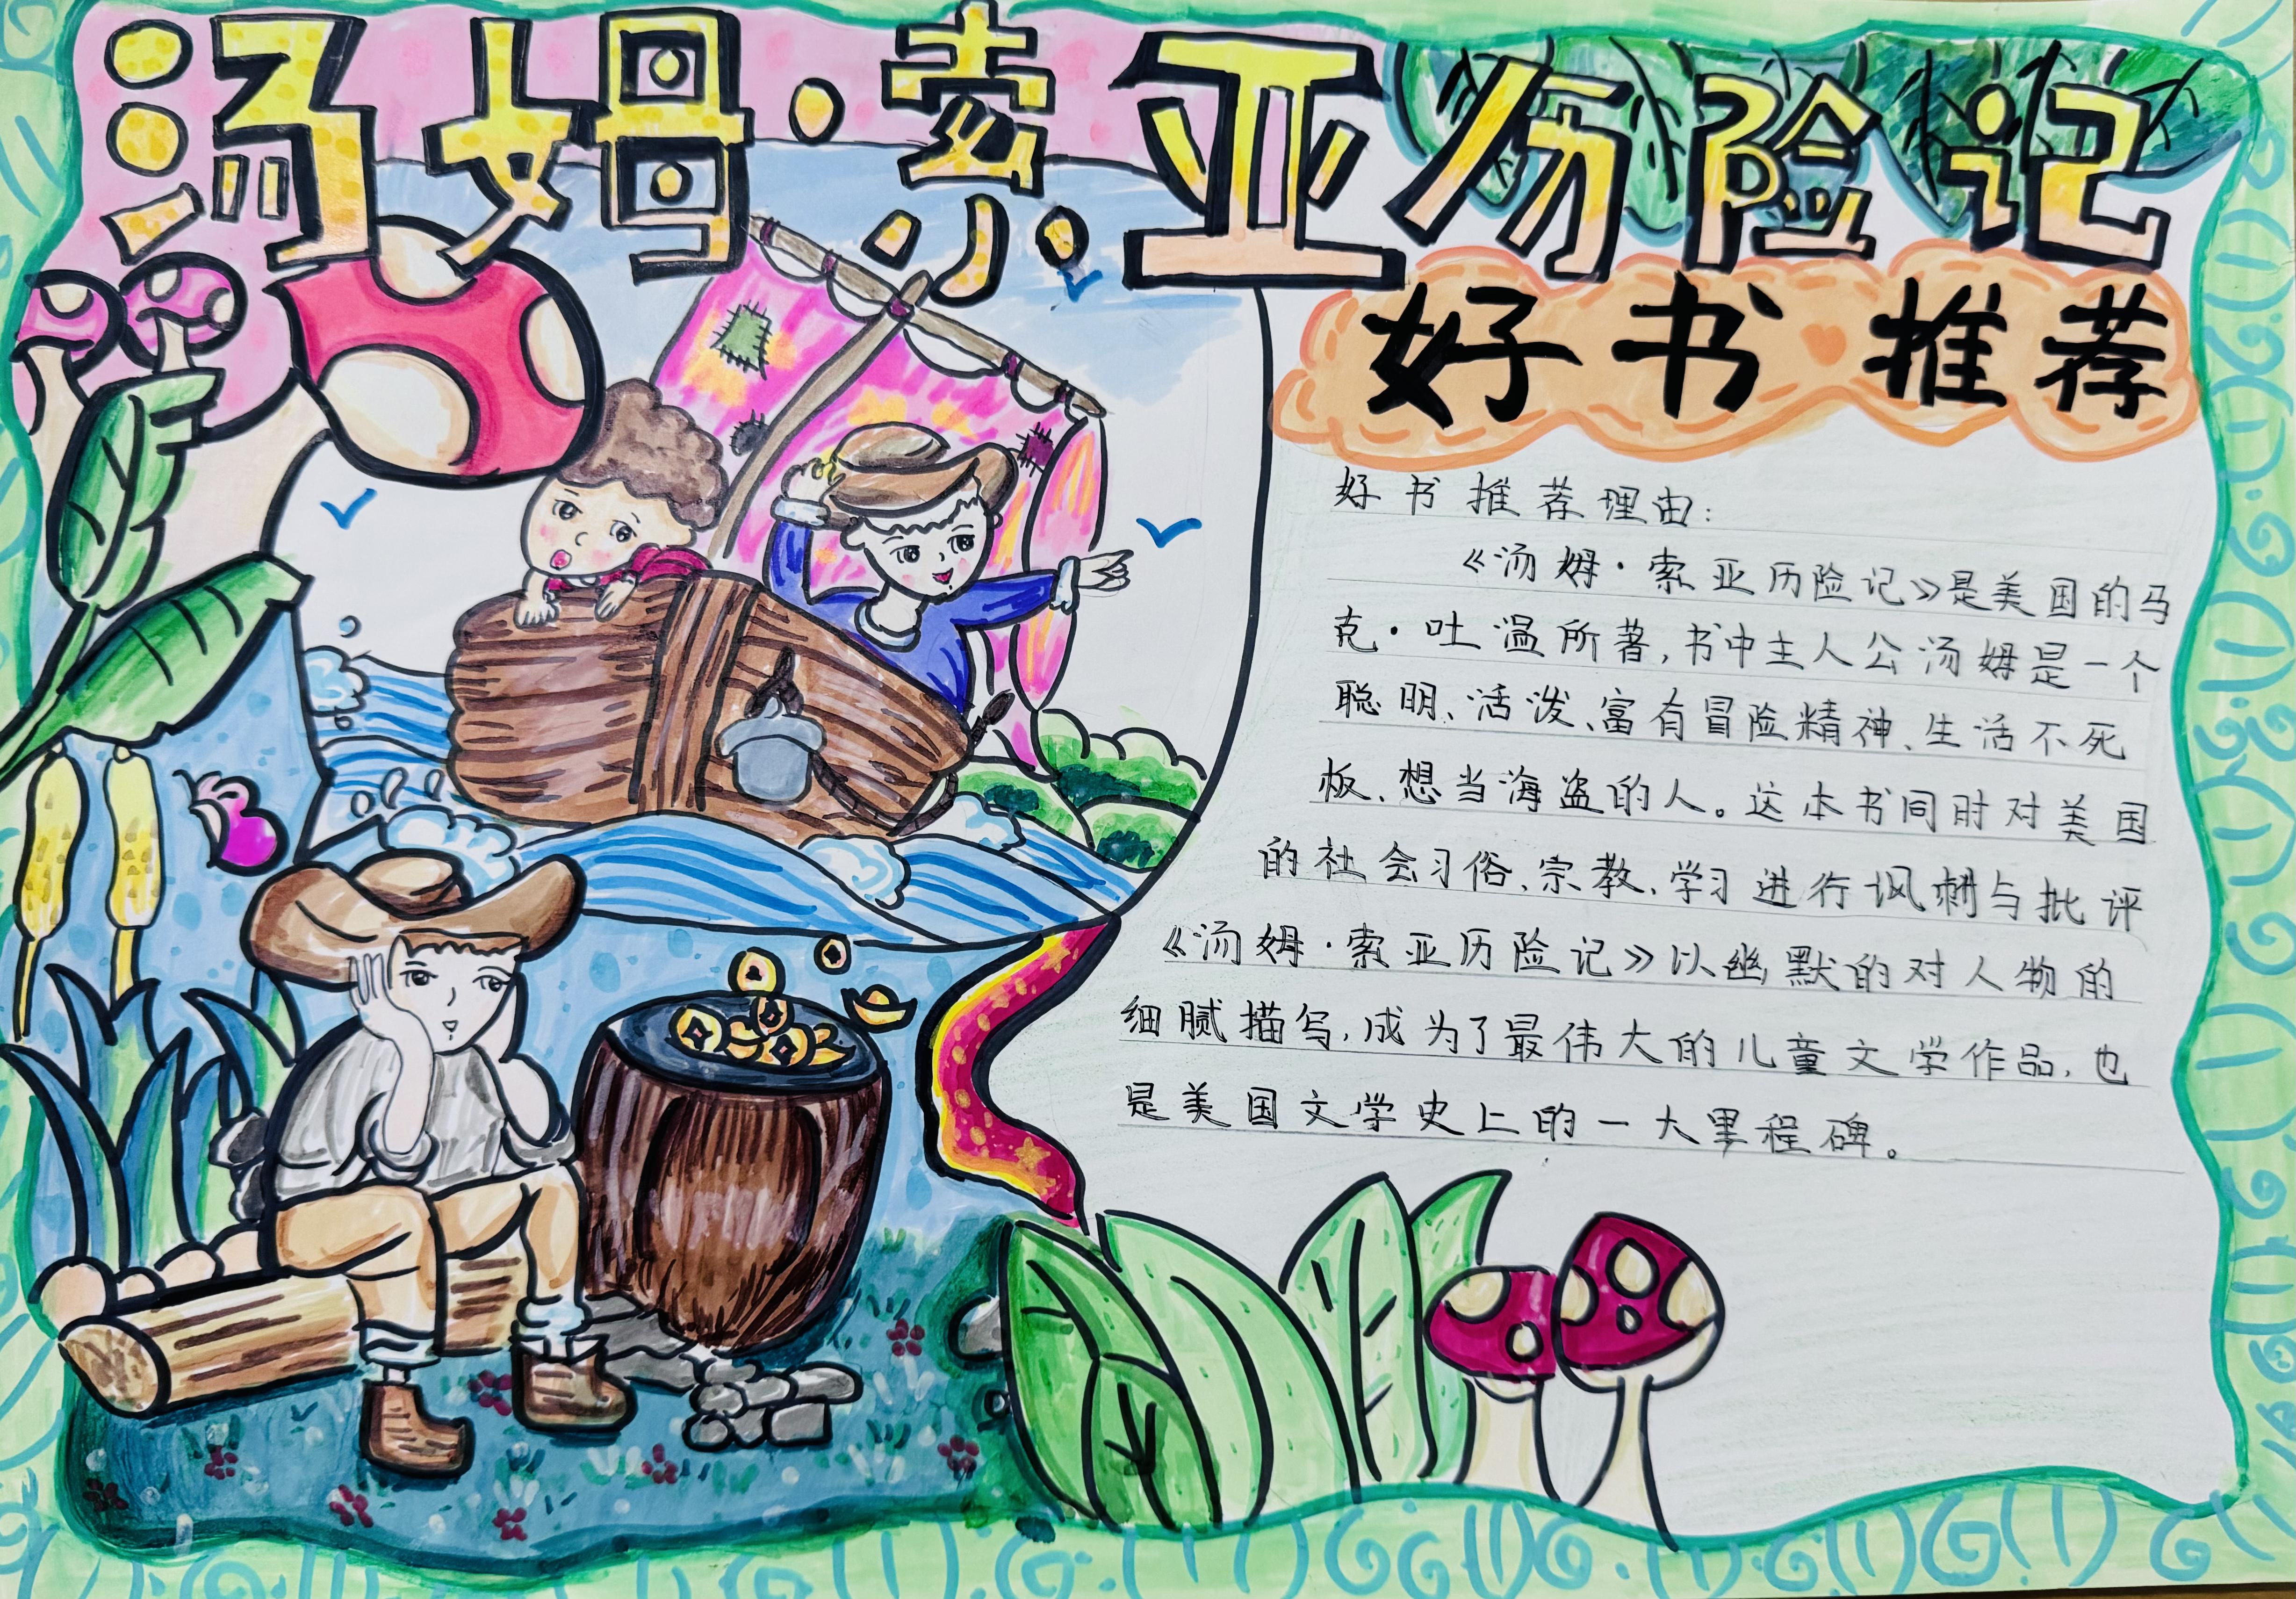 汤姆·索亚历险记
好书推荐
好书推荐理由:
《汤姆·索亚历险记》是美国的马
克·吐温所著,书中主人公汤姆是一个
聪明、活泼、富有冒险精神、生活不死
板、想当海盗的人。这本书同时对美国
的社会习俗、宗教、学习进行讽刺与批评
《汤姆·索亚历险记》以幽默的对人物的
细腻描写,成为了最伟大的儿童文学作品,也
是美国文学史上的一大里程碑。